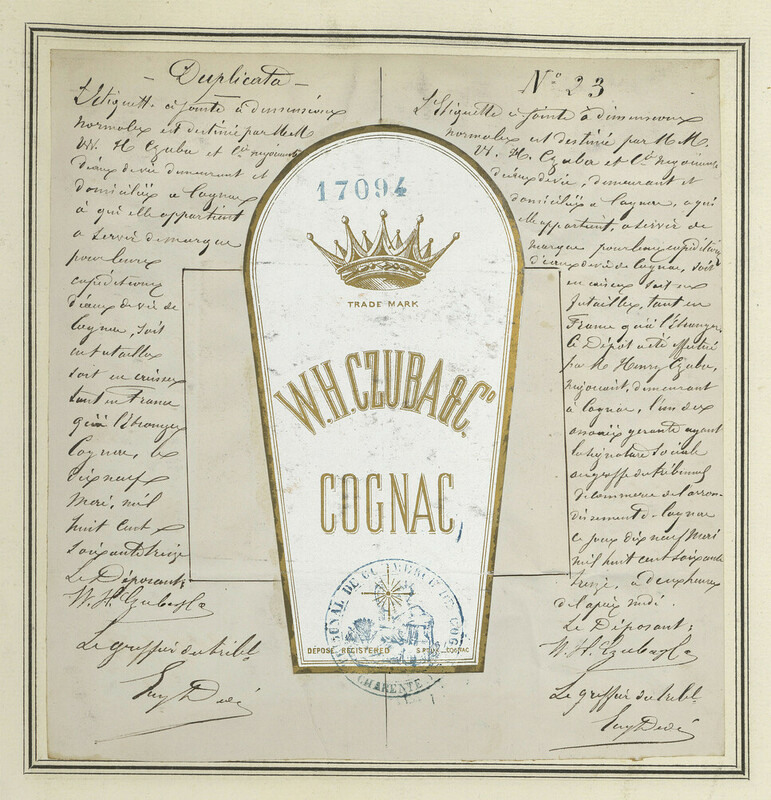 Duplicata
L'Etiquette ci jointe à dimensions
normales est destinée par MM
W. H. Czuba et Cie négociants
d'eaux de vie demeurant et
domiciliés à Cognac
à qui elle appartient
à servir de marque
pour leurs
expéditions
d'eaux de vie de
Cognac, soit
en futailles
soit en caisses
tant en France
qu'à l'Etranger
Cognac, le
dix neuf
Mars, mil
huit cent
soixante treize
Le Déposant:
W. H. Czuba & Co
Le greffier du tribl.
No 23
L'Etiquette ci jointe à dimensions
normales est destinée par MM.
W. H. Czuba et Cie négociants
d'eaux de vie, demeurant et
domiciliés à Cognac, à qui
elle appartient, à servir de
marque pour leurs expéditions
d'eaux de vie de Cognac, soit
en caisses soit en
futailles, tant en
France qu'à l'Etranger.
Ce Dépôt a été effectué
par M. Henry Czuba,
négociant, demeurant
à Cognac, l'un des
associés gérants ayant
la signature sociale
au greffe du tribunal
de commerce de l'arron-
dissement de Cognac
ce jour dix neuf Mars
mil huit cent soixante
treize, à deux heures
de l'après midi.
Le Déposant:
W. H. Czuba & Co
Le greffier du tribl.
17094
TRADE MARK
W.H. CZUBA & Co.
COGNAC
TRIBUNAL DE COMMERCE DE COG
CHARENTE
DÉPOSÉ REGISTERED
COGNAC